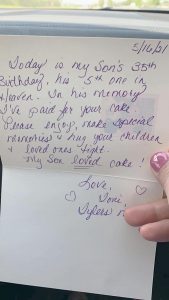 5/16/21
Today is my Son's 35th
Birthday, his 5th one in
Heaven. In his memory
I've paid for your cake.
Please enjoy, make special
memories & hug your children
& loved ones tight.
My Son loved cake!
Love,
Toni,
Tyler's